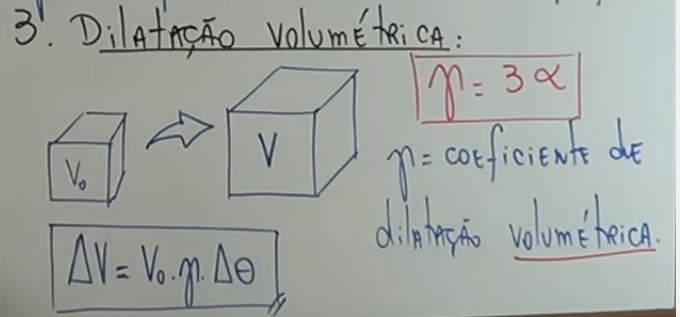 3. Dilatação volumétrica:
γ = 3 α
V₀
V
γ = coeficiente de
dilatação volumétrica.
ΔV = V₀ . γ . Δθ